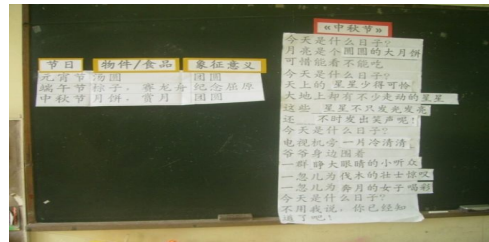 节日 物件/食品 象征意义
元宵节 汤圆 团圆
端午节 粽子，赛龙舟 纪念屈原
中秋节 月饼，赏月 团圆
《中秋节》
今天是什么日子？
月亮是个圆圆的大月饼
可惜能看不能吃
今天是什么日子？
天上的星星少得可怜
大地上却有不少走动的星星
这些 星星不只发光发亮
还 不时发出笑声呢！
今天是什么日子？
电视机旁一片冷清清
爷爷身边围着
一群睁大眼睛的小听众
一忽儿为伐木的壮士惊叹
一忽儿为奔月的女子喝彩
今天是什么日子？
不用我说，你已经知
道了吧！